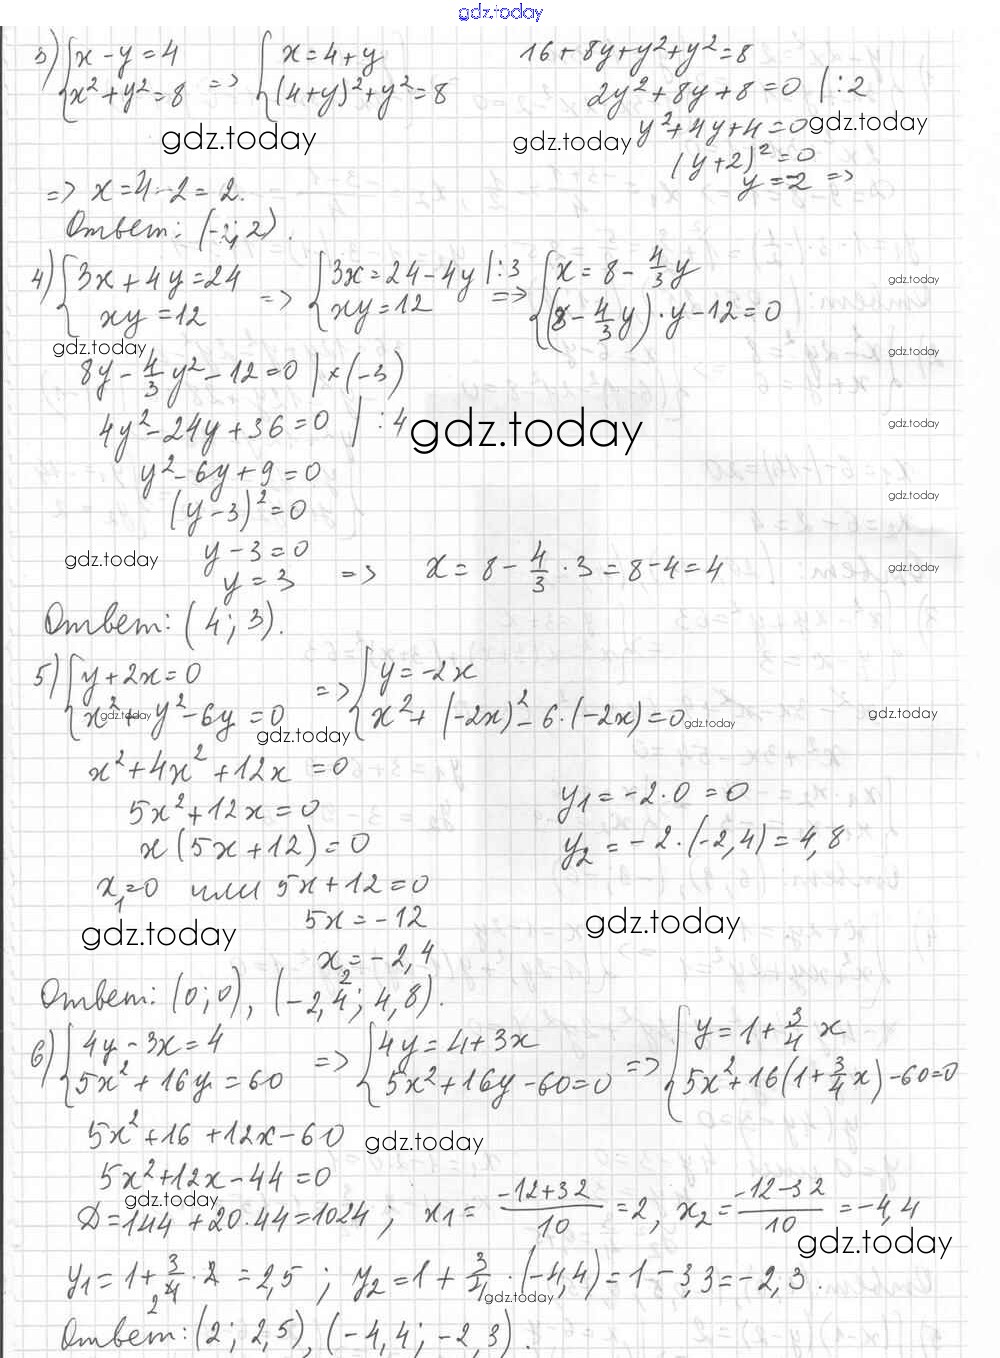 gdz.today
3) { x - y = 4   x² + y² = 8 => { x = 4 + y   (4+y)² + y² = 8
16 + 8y + y² + y² = 8
2y² + 8y + 8 = 0 | :2
y² + 4y + 4 = 0
(y+2)² = 0
y = -2 =>
gdz.today gdz.today gdz.today
=> x = 4 - 2 = 2.
Ответ: (-2; 2).
4) { 3x + 4y = 24   xy = 12 => { 3x = 24 - 4y | :3   xy = 12 => { x = 8 - 4/3 y   (8 - 4/3 y) · y - 12 = 0
gdz.today
gdz.today
8y - 4/3 y² - 12 = 0 | × (-3)
gdz.today
4y² - 24y + 36 = 0 | :4
gdz.today
gdz.today
y² - 6y + 9 = 0
(y - 3)² = 0
gdz.today
y - 3 = 0
gdz.today
y = 3 => x = 8 - 4/3 · 3 = 8 - 4 = 4
gdz.today
Ответ: (4; 3).
5) { y + 2x = 0   x² + y² - 6y = 0 => { y = -2x   x² + (-2x)² - 6·(-2x) = 0
gdz.today gdz.today gdz.today gdz.today
x² + 4x² + 12x = 0
5x² + 12x = 0
x(5x + 12) = 0
x₁ = 0 или 5x + 12 = 0
5x = -12
x₂ = -2,4
y₁ = -2·0 = 0
y₂ = -2·(-2,4) = 4,8
gdz.today gdz.today
Ответ: (0; 0), (-2,4; 4,8).
6) { 4y - 3x = 4   5x² + 16y = 60 => { 4y = 4 + 3x   5x² + 16y - 60 = 0 => { y = 1 + 3/4 x   5x² + 16(1 + 3/4 x) - 60 = 0
5x² + 16 + 12x - 60
gdz.today
5x² + 12x - 44 = 0
gdz.today
Д = 144 + 20·44 = 1024; x₁ = (-12+32)/10 = 2, x₂ = (-12-32)/10 = -4,4
gdz.today
y₁ = 1 + 3/4 · 2 = 2,5; y₂ = 1 + 3/4 · (-4,4) = 1 - 3,3 = -2,3.
2
gdz.today
Ответ: (2; 2,5), (-4,4; -2,3).